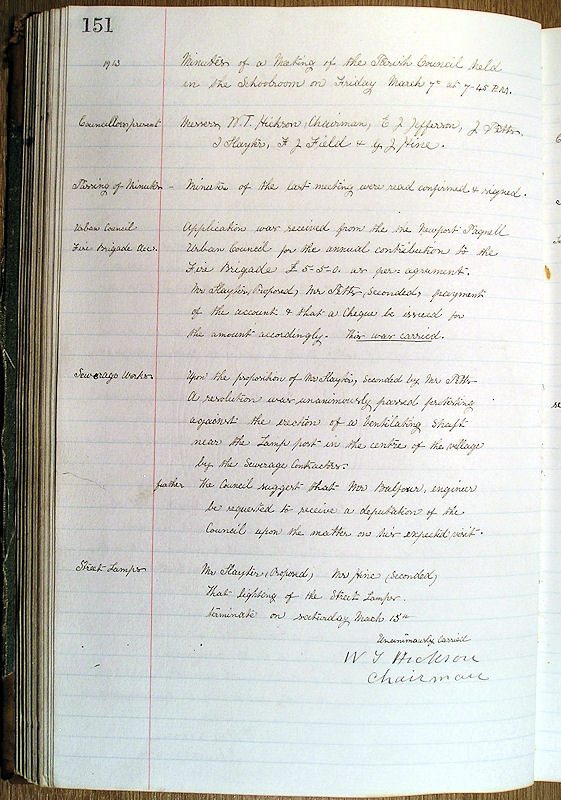 151
1913 Minutes of a Meeting of the Parish Council held
in the Schoolroom on Friday March 7th at 7-45 P.M.
Councillors present Messers W. T. Hickson, Chairman, E J Jefferson, J Petts,
T Slayter, F J Field & G J Hine.
Passing of Minutes - Minutes of the last meeting were read confirmed & signed.
Urban Council Application was received from the the Newport Pagnell
Fire Brigade Acc. Urban Council for the annual contribution to the
Fire Brigade £ 5-5-0. as per agrement.
Mr Slayter, Proposed, Mr Petts, Seconded, payment
of the account & that a Cheque be issued for
the amount accordingly. This was carried.
Sewerage Works Upon the proposition of Mr Slayter, seconded by Mr Petts
A resolution was unanimously passed protesting
against the erection of a Ventilating Shaft
near the Lamp post in the centre of the village
by the Sewerage Contractors.
further The Council suggest that Mr Balfour, engineer
be requested to receive a deputation of the
Council upon the matter on his expected visit.
Street Lamps Mr Slayter (Proposed) Mr Hine (Seconded)
That lighting of the Street Lamps
terminate on saturday March 15th
Unanimously Carried
W T Hickson
Chairman